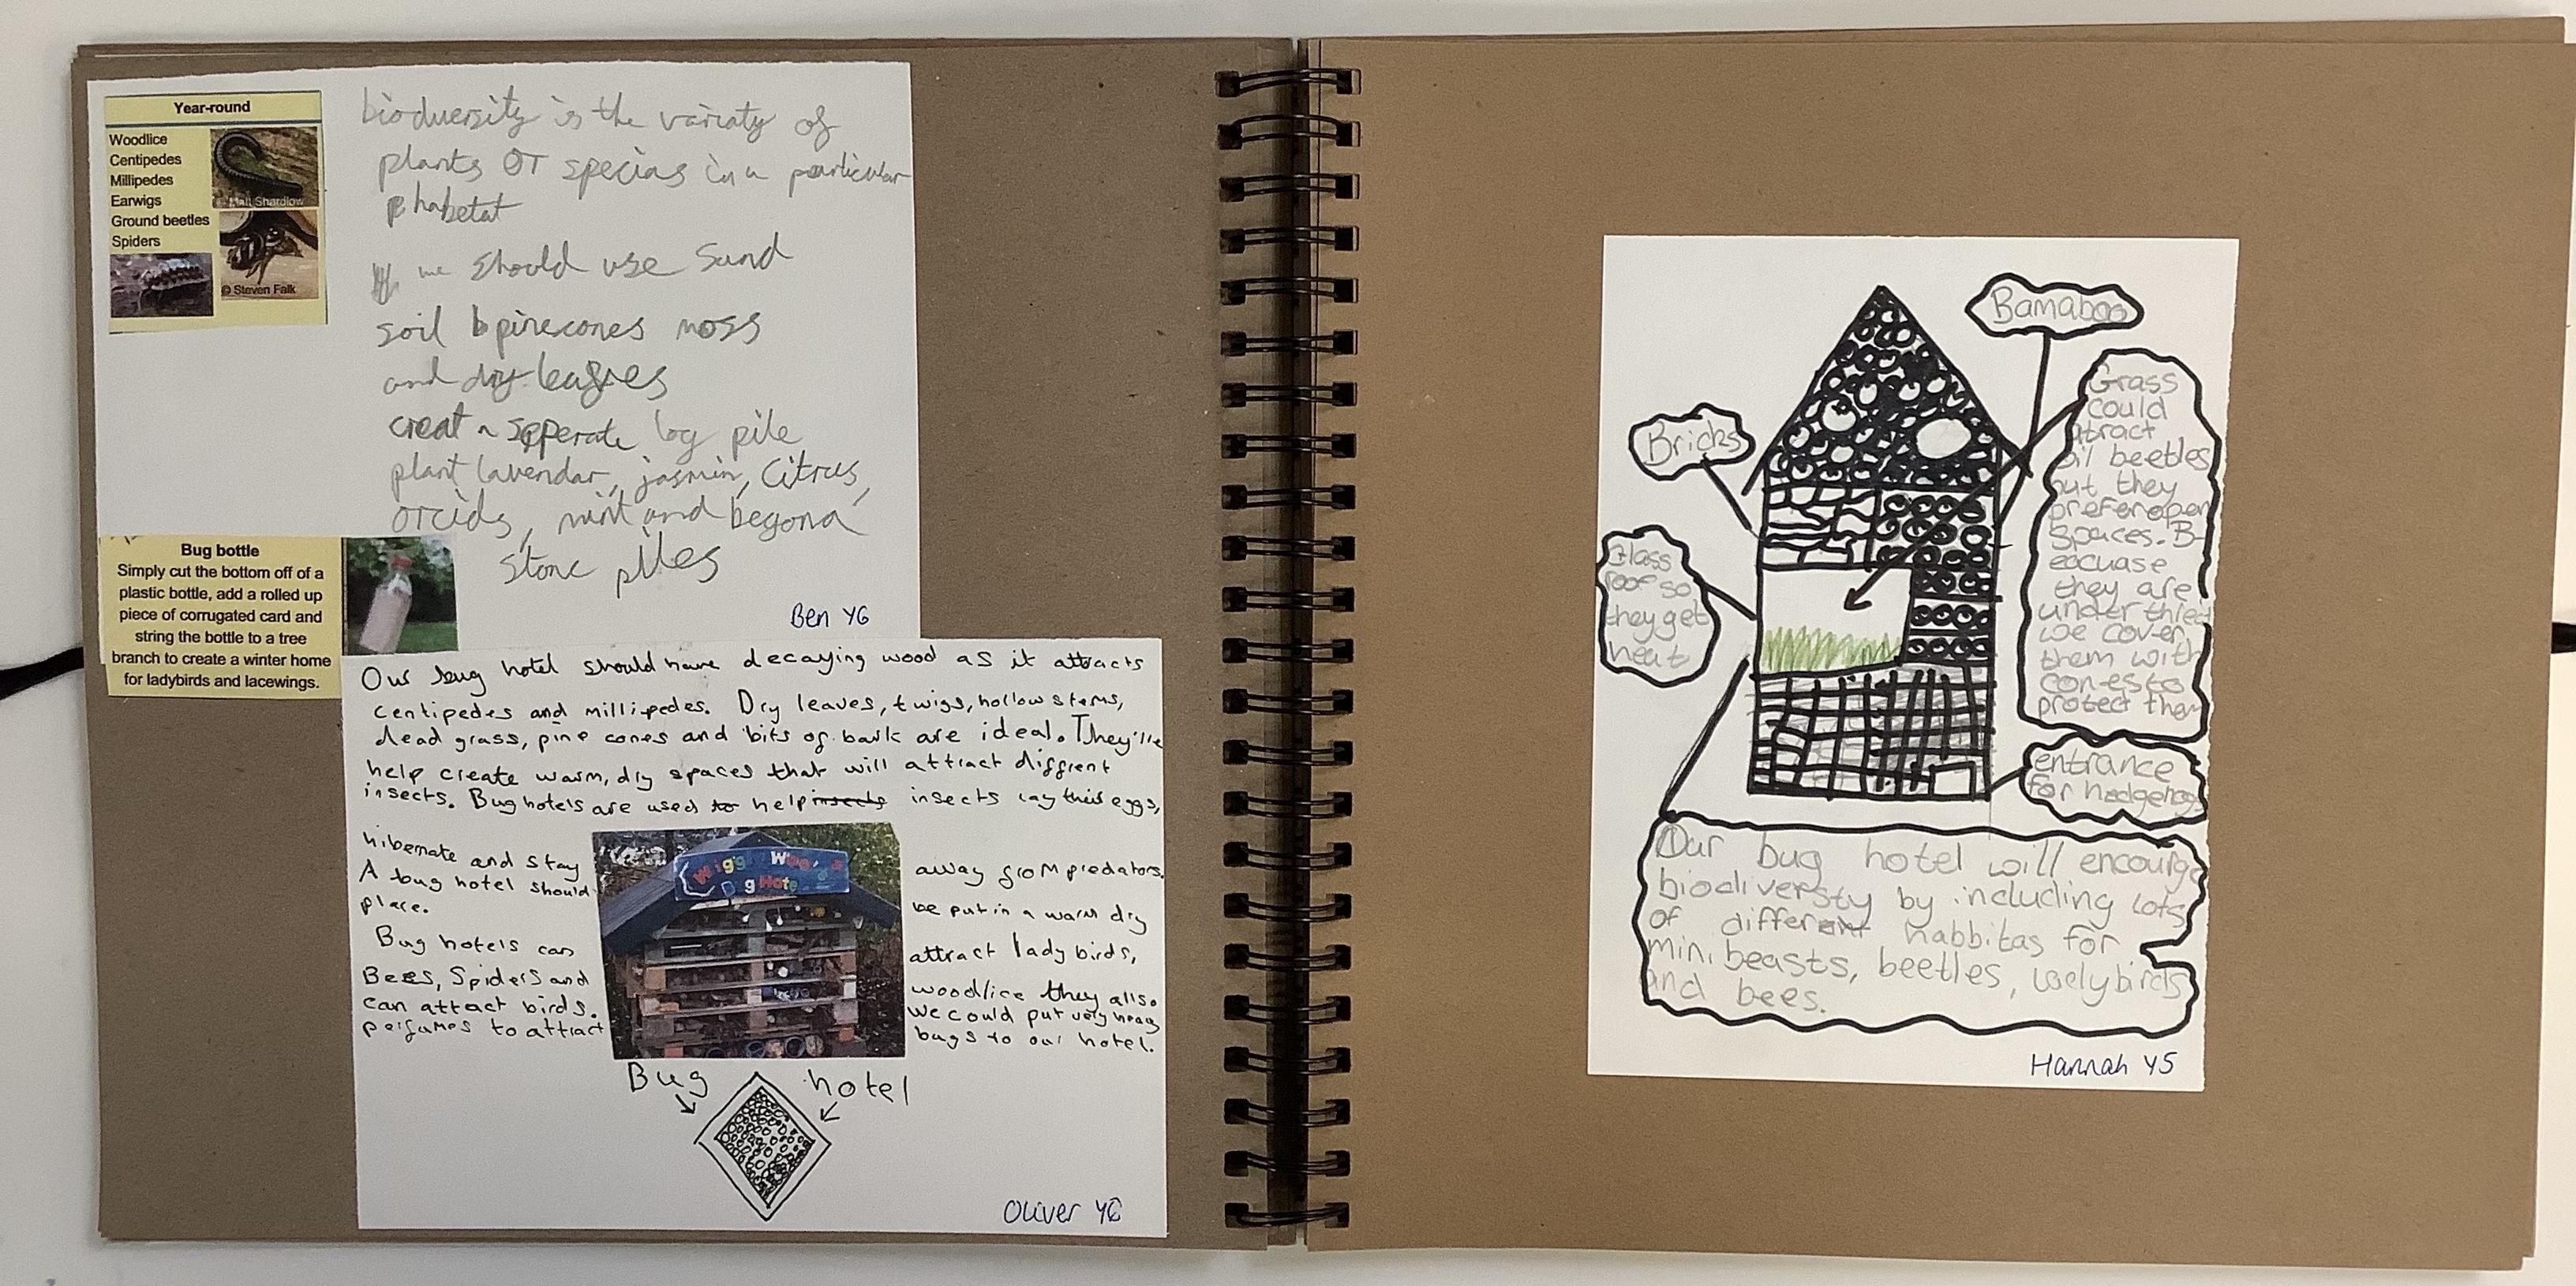 Year-round
Woodlice
Centipedes
Millipedes
Earwigs
Ground beetles
Spiders
© Matt Shardlow
© Steven Falk
biodversity is the variaty of
plants or specias in a particular
habetat
we should use Sand
soil pinecones moss
and dry leagves
creat a sepperate log pile
plant lavendar, jasmin, Citrus,
orcids, mint and begona
stone piles
Ben Y6
Bug bottle
Simply cut the bottom off of a
plastic bottle, add a rolled up
piece of corrugated card and
string the bottle to a tree
branch to create a winter home
for ladybirds and lacewings.
Our bug hotel should have decaying wood as it attracts
centipedes and millipedes. Dry leaves, twigs, hollow stems,
dead grass, pine cones and bits of bark are ideal. They'lle
help create warm, dry spaces that will attract diffrent
insects. Bug hotels are used to help insects insects lay their eggs,
hibernate and stay away from predators.
A bug hotel should be put in a warm dry
place.
Bug hotels can attract lady birds,
Bees, Spiders and woodlice they allso
can attact birds. We could put very heavy
perfumes to attract bugs to our hotel.
Bug hotel
Oliver Y6
Bamaboo
Bricks
Grass
could
atract
oil beetles
but they
prefer open
Spaces. B-
eacuase
they are
under thret
we cover
them with
cones to
protect them
Glass
roof so
they get
heat
entrance
for hedgehogs
Our bug hotel will encourge
biodiversty by including lots
of different habbitas for
mini beasts, beetles, ladybirds
and bees.
Hannah Y5